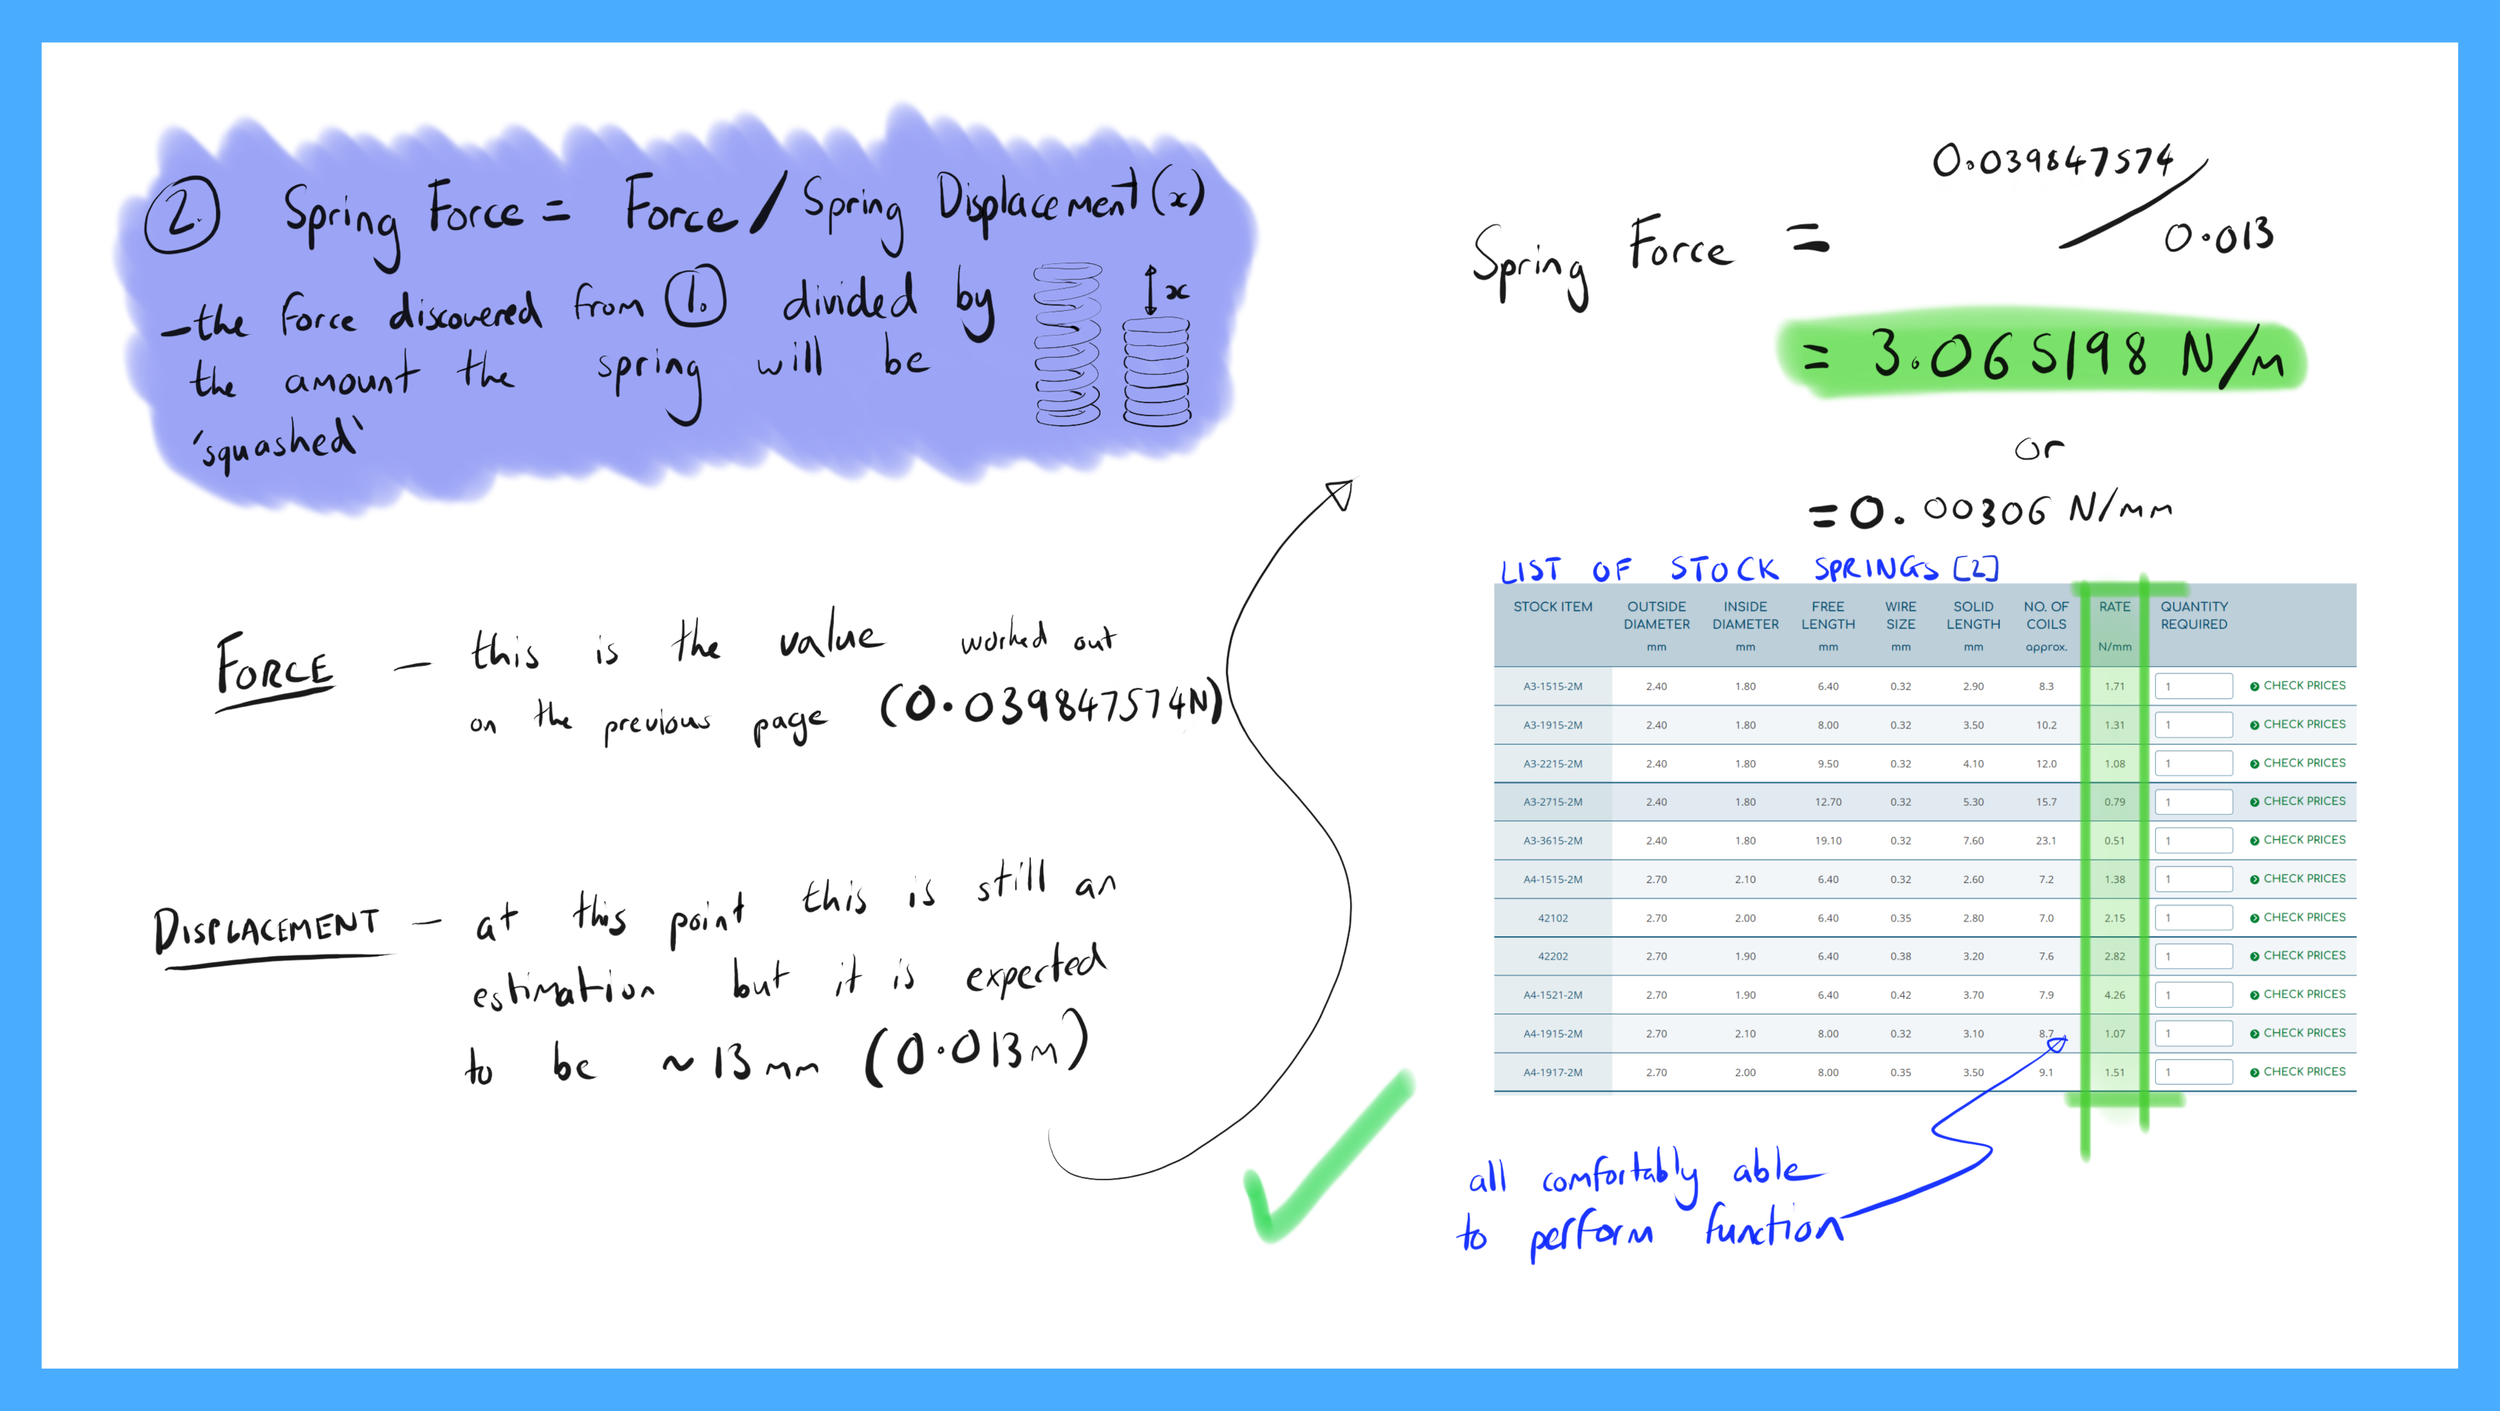 2. Spring Force = Force / Spring Displacement (x)
- the force discovered from 1. divided by
the amount the spring will be
'squashed'
x
FORCE - this is the value worked out
on the previous page (0.039847574N)
DISPLACEMENT - at this point this is still an
estimation but it is expected
to be ~13mm (0.013m)
Spring Force = 0.039847574 / 0.013
= 3.065198 N/m
or
= 0.00306 N/mm
LIST OF STOCK SPRINGS [2]
STOCK ITEM OUTSIDE DIAMETER mm INSIDE DIAMETER mm FREE LENGTH mm WIRE SIZE mm SOLID LENGTH mm NO. OF COILS approx. RATE N/mm QUANTITY REQUIRED
A3-1515-2M 2.40 1.80 6.40 0.32 2.90 8.3 1.71 1 CHECK PRICES
A3-1915-2M 2.40 1.80 8.00 0.32 3.50 10.2 1.31 1 CHECK PRICES
A3-2215-2M 2.40 1.80 9.50 0.32 4.10 12.0 1.08 1 CHECK PRICES
A3-2715-2M 2.40 1.80 12.70 0.32 5.30 15.7 0.79 1 CHECK PRICES
A3-3615-2M 2.40 1.80 19.10 0.32 7.60 23.1 0.51 1 CHECK PRICES
A4-1515-2M 2.70 2.10 6.40 0.32 2.60 7.2 1.38 1 CHECK PRICES
42102 2.70 2.00 6.40 0.35 2.80 7.0 2.15 1 CHECK PRICES
42202 2.70 1.90 6.40 0.38 3.20 7.6 2.82 1 CHECK PRICES
A4-1521-2M 2.70 1.90 6.40 0.42 3.70 7.9 4.26 1 CHECK PRICES
A4-1915-2M 2.70 2.10 8.00 0.32 3.10 8.7 1.07 1 CHECK PRICES
A4-1917-2M 2.70 2.00 8.00 0.35 3.50 9.1 1.51 1 CHECK PRICES
all comfortably able
to perform function